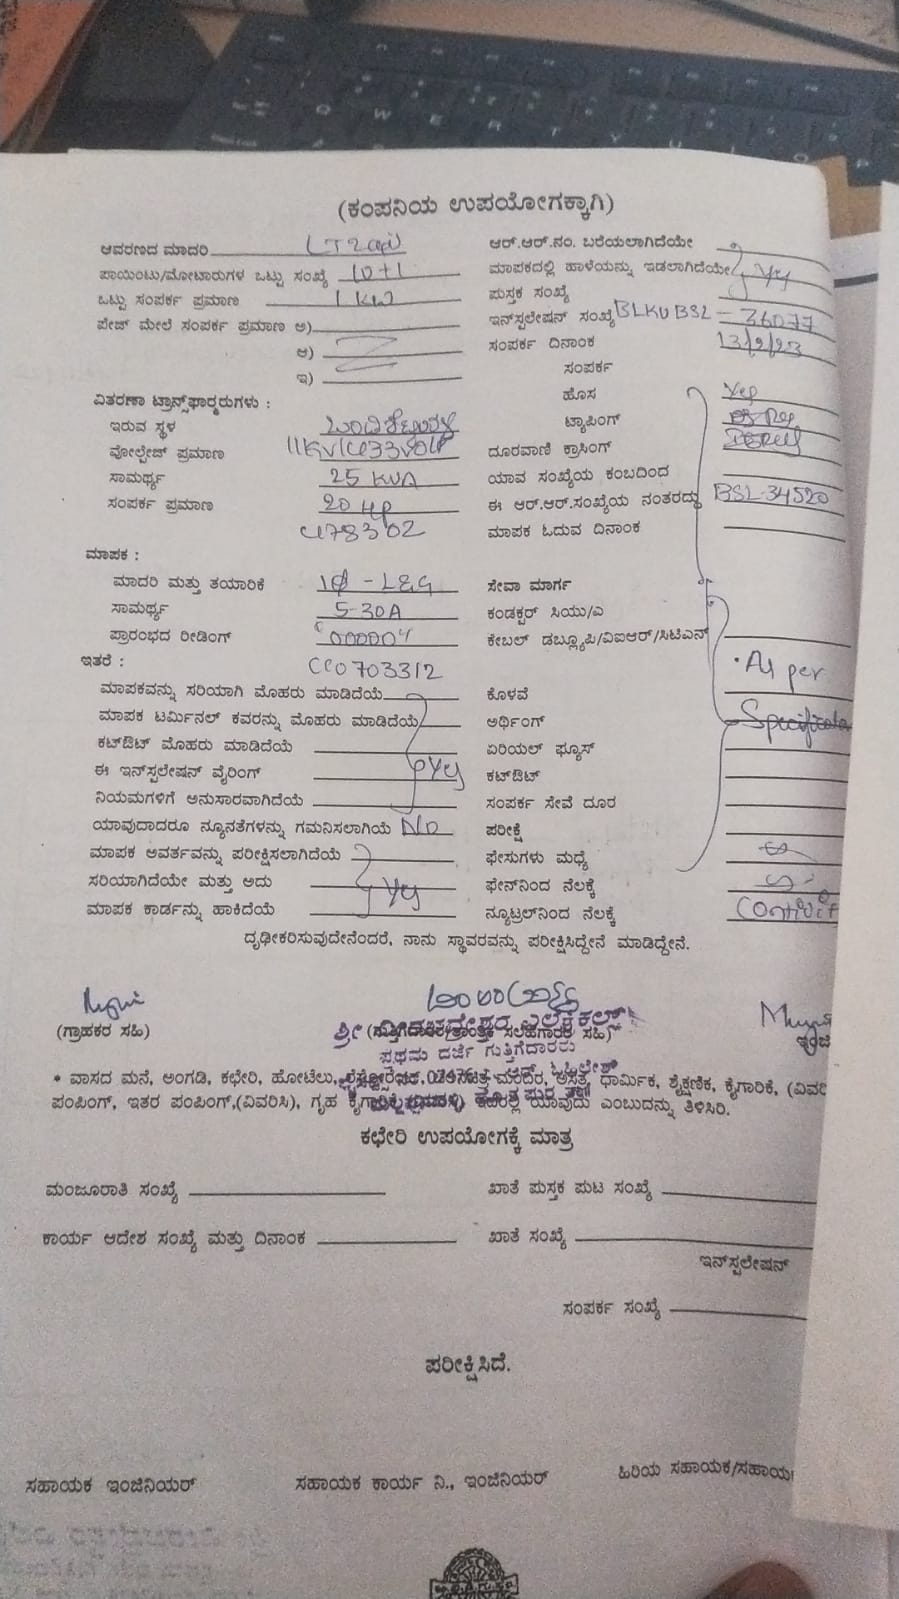 (ಕಂಪನಿಯ ಉಪಯೋಗಕ್ಕಾಗಿ)
ಆವರಣದ ಮಾದರಿ LT2a(ii)
ಪಾಯಿಂಟು/ಮೋಟಾರುಗಳ ಒಟ್ಟು ಸಂಖ್ಯೆ 10+1
ಒಟ್ಟು ಸಂಪರ್ಕ ಪ್ರಮಾಣ 1 KW
ಪೇಜ್ ಮೇಲೆ ಸಂಪರ್ಕ ಪ್ರಮಾಣ ಅ)
ಆ)
ಇ)
ವಿತರಣಾ ಟ್ರಾನ್ಸ್‌ಫಾರ್ಮರುಗಳು :
ಇರುವ ಸ್ಥಳ
ವೋಲ್ಟೇಜ್ ಪ್ರಮಾಣ 11KV/433Volt
ಸಾಮರ್ಥ್ಯ 25 KVA
ಸಂಪರ್ಕ ಪ್ರಮಾಣ 20 HP
ಮಾಪಕ :
ಮಾದರಿ ಮತ್ತು ತಯಾರಿಕೆ 1Ø - L&G
ಸಾಮರ್ಥ್ಯ 5-30A
ಪ್ರಾರಂಭದ ರೀಡಿಂಗ್
ಇತರೆ :
ಮಾಪಕವನ್ನು ಸರಿಯಾಗಿ ಮೊಹರು ಮಾಡಿದೆಯೆ
ಮಾಪಕ ಟರ್ಮಿನಲ್ ಕವರನ್ನು ಮೊಹರು ಮಾಡಿದೆಯೆ
ಕಟ್‌ಔಟ್ ಮೊಹರು ಮಾಡಿದೆಯೆ
ಈ ಇನ್‌ಸ್ಟಲೇಷನ್ ವೈರಿಂಗ್ Yes
ನಿಯಮಗಳಿಗೆ ಅನುಸಾರವಾಗಿದೆಯೆ
ಯಾವುದಾದರೂ ನ್ಯೂನತೆಗಳನ್ನು ಗಮನಿಸಲಾಗಿಯೆ No
ಮಾಪಕ ಅವರ್ತವನ್ನು ಪರೀಕ್ಷಿಸಲಾಗಿದೆಯೆ
ಸರಿಯಾಗಿದೆಯೇ ಮತ್ತು ಅದು Yes
ಮಾಪಕ ಕಾರ್ಡನ್ನು ಹಾಕಿದೆಯೆ
ಆರ್.ಆರ್.ನಂ. ಬರೆಯಲಾಗಿದೆಯೇ
ಮಾಪಕದಲ್ಲಿ ಹಾಳೆಯನ್ನು ಇಡಲಾಗಿದೆಯೇ Yes
ಪುಸ್ತಕ ಸಂಖ್ಯೆ
ಇನ್‌ಸ್ಟಲೇಷನ್ ಸಂಖ್ಯೆ BLKUBSL - 36077
ಸಂಪರ್ಕ ದಿನಾಂಕ 13/2/23
ಸಂಪರ್ಕ
ಹೊಸ Yes
ಟ್ಯಾಪಿಂಗ್
ದೂರವಾಣಿ ಕ್ರಾಸಿಂಗ್
ಯಾವ ಸಂಖ್ಯೆಯ ಕಂಬದಿಂದ
ಈ ಆರ್.ಆರ್.ಸಂಖ್ಯೆಯ ನಂತರದ್ದು BSL-34520
ಮಾಪಕ ಓದುವ ದಿನಾಂಕ
ಸೇವಾ ಮಾರ್ಗ
ಕಂಡಕ್ಟರ್ ಸಿಯು/ಎ
ಕೇಬಲ್ ಡಬ್ಲ್ಯೂಪಿ/ವಿಐಆರ್/ಸಿಟಿಎಸ್
ಕೊಳವೆ As per
ಅರ್ಥಿಂಗ್
ಏರಿಯಲ್ ಫ್ಯೂಸ್
ಕಟ್‌ಔಟ್
ಸಂಪರ್ಕ ಸೇವೆ ದೂರ
ಪರೀಕ್ಷೆ
ಫೇಸುಗಳು ಮಧ್ಯೆ
ಫೇಸ್‌ನಿಂದ ನೆಲಕ್ಕೆ
ನ್ಯೂಟ್ರಲ್‌ನಿಂದ ನೆಲಕ್ಕೆ
ದೃಢೀಕರಿಸುವುದೇನೆಂದರೆ, ನಾನು ಸ್ಥಾವರವನ್ನು ಪರೀಕ್ಷಿಸಿದ್ದೇನೆ ಮಾಡಿದ್ದೇನೆ.
(ಗ್ರಾಹಕರ ಸಹಿ)
ಪ್ರಥಮ ದರ್ಜೆ ಗುತ್ತಿಗೆದಾರರು
* ವಾಸದ ಮನೆ, ಅಂಗಡಿ, ಕಛೇರಿ, ಹೋಟೆಲು, ಧಾರ್ಮಿಕ, ಶೈಕ್ಷಣಿಕ, ಕೈಗಾರಿಕೆ,
ಪಂಪಿಂಗ್, ಇತರ ಪಂಪಿಂಗ್,(ವಿವರಿಸಿ), ಗೃಹ ಯಾವುದು ಎಂಬುದನ್ನು ತಿಳಿಸಿರಿ.
ಕಛೇರಿ ಉಪಯೋಗಕ್ಕೆ ಮಾತ್ರ
ಮಂಜೂರಾತಿ ಸಂಖ್ಯೆ
ಖಾತೆ ಪುಸ್ತಕ ಪುಟ ಸಂಖ್ಯೆ
ಕಾರ್ಯ ಆದೇಶ ಸಂಖ್ಯೆ ಮತ್ತು ದಿನಾಂಕ
ಖಾತೆ ಸಂಖ್ಯೆ
ಇನ್‌ಸ್ಟಲೇಷನ್
ಸಂಪರ್ಕ ಸಂಖ್ಯೆ
ಪರೀಕ್ಷಿಸಿದೆ.
ಸಹಾಯಕ ಇಂಜಿನಿಯರ್
ಸಹಾಯಕ ಕಾರ್ಯ ನಿ., ಇಂಜಿನಿಯರ್
ಹಿರಿಯ ಸಹಾಯಕ/